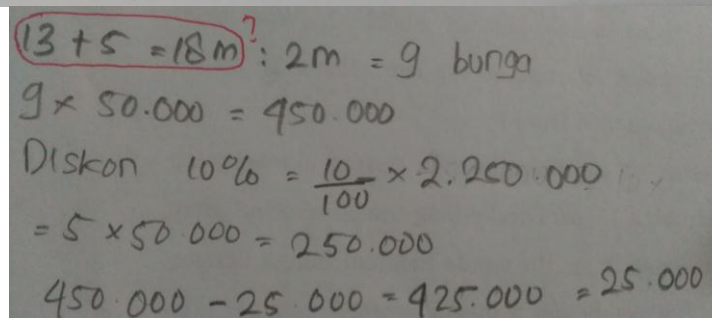 13 + 5 = 18 m ? : 2 m = 9 bunga
9 × 50.000 = 450.000
Diskon 10% = 10/100 × 2.250.000
= 5 × 50.000 = 250.000
450.000 - 25.000 = 425.000 = 25.000